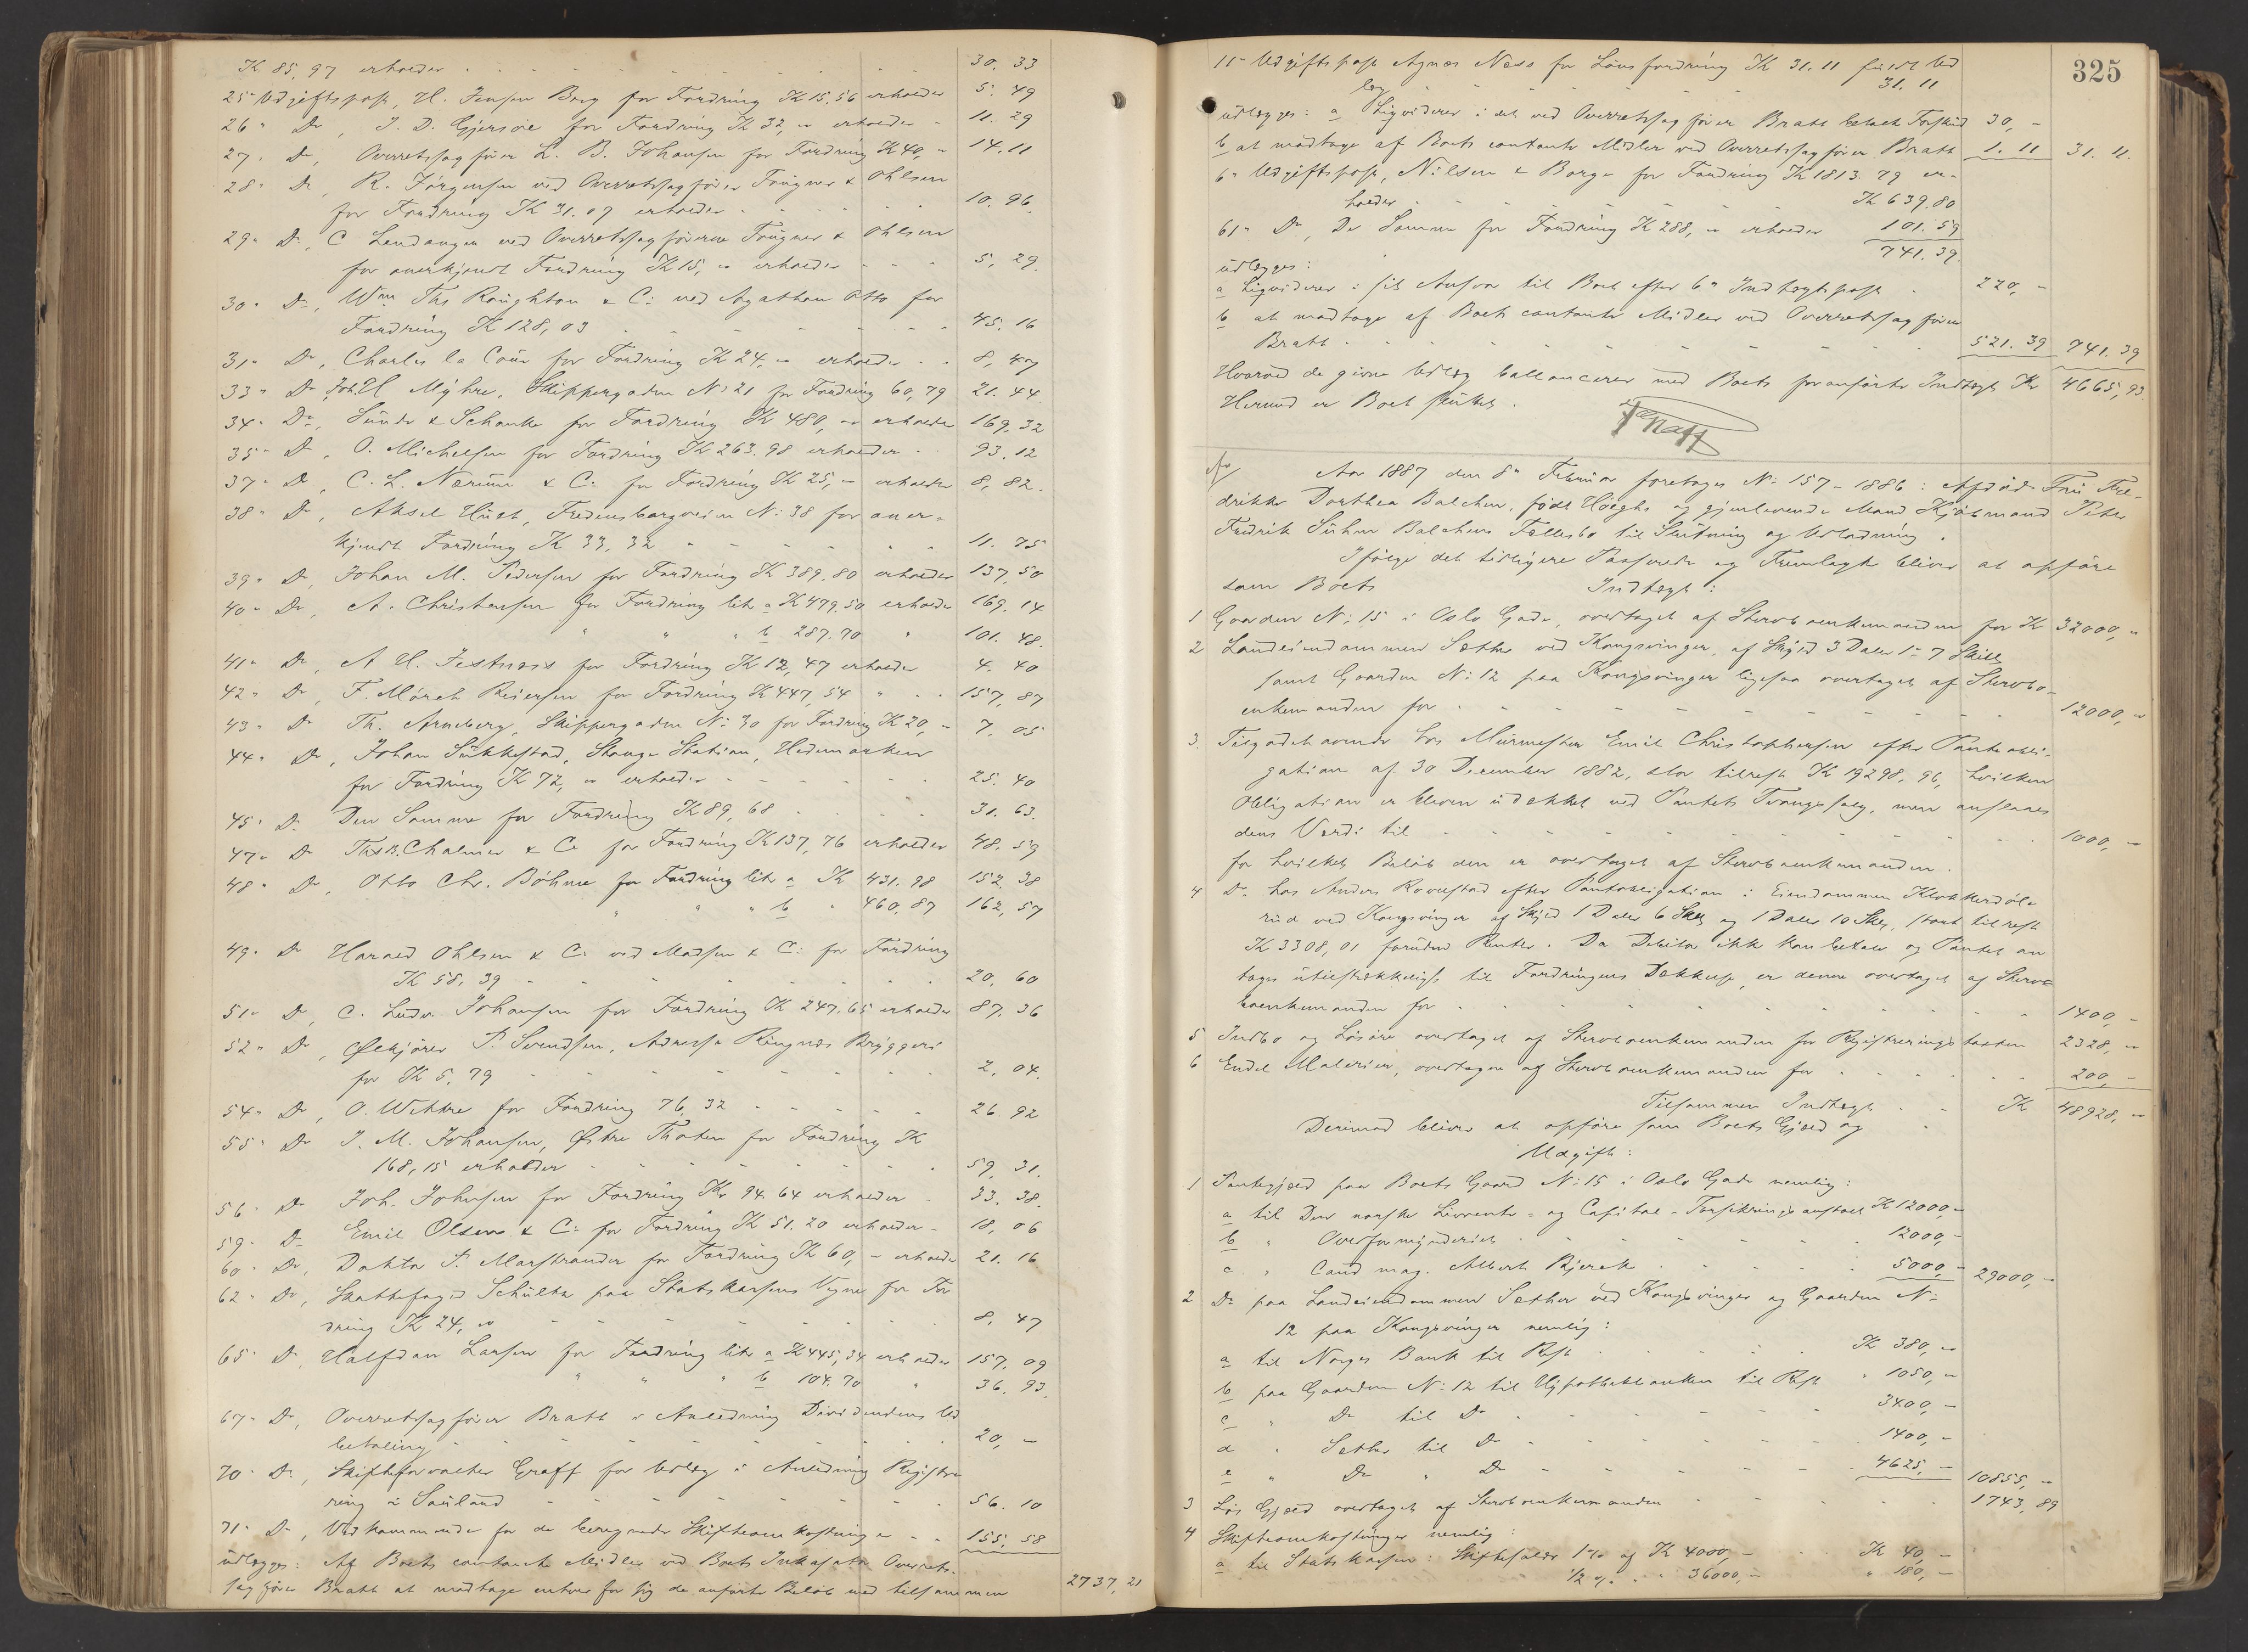 K 85,97 erholder 30. 33
25" Udgiftspost, H. Jensen Berg for Fordring K 15,56 erholder 5. 49
26" Do, J. D. Gjersøe for Fordring K 32, " erholder 11. 29
27" Do, Overretssagfører L. B. Johansen for Fordring K 40, " 14. 11
28" Do, R. Jørgensen ved Overretssagfører Tougner & Ohlsen
for Fordring K 31.07 erholder 10. 96.
29" Do, C Lendangen ved Overretssagførerne Tougner & Ohlsen
for anerkjendt Fordring K 15, " erholder 5, 29.
30" Do, Wm Ths Roughton & C: ved Agathon Otto for
Fordring K 128,03 45. 16
31" Do, Charles la Cour for Fordring K 24, " erholder 8, 47
33" Do Joh. H Myhre, Skippergaden No 21 for Fordring 60,79 21. 44.
34" Do, Sundt & Schanke for Fordring K 480, " erholder 169. 32
35" Do, O. Michelsen for Fordring K 263.98 erholder 93. 12
37" Do, C. L. Nærum & C: for Fordring K 25, " erholder 8, 82.
38" Do, Aksel Hust, Fredensborgveien N: 38 for aner-
kjendt Fordring K 33,32 11. 75
39" Do, Johan M. Pedersen for Fordring K 389.80 erholder 137, 50
40" Do, A. Christensen for Fordring litr a K 479.50 erholder 169. 14
" " " b 287.70 " 101. 48.
41" Do, A H. Festnæss for Fordring K 12,47 erholder 4. 40
42" Do, F. Mørch Reiersen for Fordring K 447,54 " 157, 87
43" Do Th. Arneberg, Skippergaden N: 30 for Fordring K 20, " 7. 05
44" Do, Johan Sukkestad, Stange Station, Hedemarken
for Fordring K 72, " erholder 25. 40
45" Do Den Samme for Fordring K 89,68 31. 63.
47" Do Ths B. Chalmer & Co for Fordring K 137,76 erholder 48. 59
48" Do, Otto Chr. Bøhme for Fordring litr a K 431.98 152. 38
" " " b " 460,87 162, 57
49" Do Harald Ohlsen & C: ved Madsen & C: for Fordring
K 58,39 20, 60
51" Do, C. Ludv. Johansen for Fordring K 247.65 erholder 87, 36
52" Do, Ølkjører P. Svendsen, Adresse Ringnæs Bryggeri
for K 5,79 2, 04.
54" Do, O. Wekkre for Fordring 76,32 26. 92
55" Do J. M. Johansen, Østre Thoten for Fordring K
168,15 erholder 59. 31.
56" Do Joh. Johnsen for Fordring Kr 94.64 erholder 33. 38.
59" Do Emil Olsen & C: for Fordring K 51.20 erholder 18, 06
60" Do, Doktor P. Marstrander for Fordring K 60, " erholder 21. 16
62" Do, Skattefoged Schultz paa Statskassens Vegne for For
dring K 24, " 8, 47
65" Do, Halfdan Larsen for Fordring litr a K 445,34 erholder 157, 09
" " " b 104.70 " 36. 93.
67" Do, Overretssagfører Bratt i Anledning Dividendens Ud
betaling 20, "
70" Do, Skifteforvalter Graff for Udlæg i Anledning Registre-
ring i Sauland 56. 10
71" Do, Vedkommende for de beregnede Skifteomkostninger 155. 58
udlægges: Af Boets contante Midler ved Boets Inkasator Overrets-
sagfører Bratt at modtage enhver for sig de anførte Beløb med tilsammen 2737, 21
325
11" Udgiftspost Agnes Næss for Lønsfordring K 31.11 fuldt Ud
læg 31. 11
udlægges: a Liqviderer i det ved Overretssagfører Bratt betalt Forskud 30, "
b at modtage af Boets contante Midler ved Overretssagfører Bratt 1. 11 31. 11.
6" Udgiftspost, Nilsen & Borge for Fordring K 1813.79 er-
holder K 639.80
61" Do, De Samme for Fordring K 288, " erholder 101. 59
741. 39.
udlægges:
a Liqviderer i sit Ansvar til Boet efter 6" Indtægtspost 220, "
b at modtage af Boets contante Midler ved Overretssagfører
Bratt 521. 39 741. 39
Hvorved de givne Udlæg ballancerer med Boets foranførte Indtægt Kr 4665,93.
Hermed er Boet sluttet.
Graff
Aar 1887 den 8" Februar foretages N: 157-1886: Afdøde Fru Fre-
drikke Dorthea Balchen, født Høegh, og gjenlevende Mand Kjøbmand Peter
Fredrik Suhm Balchens Fællesbo til Slutning og Udlodning.
Ifølge det tidligere Passerede og Fremlagte bliver at opføre
som Boets Indtægt:
1 Gaarden N: 15 i Oslo Gade, overtaget af Stervboenkemanden for K 32000, "
2 Landeiendommen Sæther ved Kongsvinger, af Skyld 3 Daler 1" 7 Skill
samt Gaarden N: 12 paa Kongsvinger ligesaa overtaget af Sterbo-
enkemanden for 12000, "
3. Tilgodehavende hos Murmester Emil Christophersen efter Panteobli-
gation af 30 December 1882, stor tilrest K 19298, 96, hvilken
Obligation er bleven udækket ved Pantets Tvangssalg, men anslaaes
dens Værdi til 1000, "
for hvilket Beløb den er overtaget af Sterboenkemanden.
4 Do hos Anders Roverstad efter Panteobligation i Eiendommen Klokkerdøle-
rud ved Kongsvinger af Skyld 1 Daler 6 Sk og 1 Daler 10 Sk, stort tilrest
K 3308,01 foruden Renter. Da Debitor ikke kan betale og Pantet an
tages utilstrækkeligt til Fordringens Dækkelse, er denne overtaget af Sterv-
boenkemanden for 1400, "
5 Indbo og Løsøre overtaget af Stervboenkemanden for Registreringstaxten 2328, "
6 Endel Malerier, overtagne af Stervboenkemanden for 200, "
Tilsammen Indtægt K 48928, "
Derimod bliver at opføre som Boets Gjæld og
Udgift:
1 Pantegjæld paa Boets Gaard N: 15 i Oslo Gade nemlig:
a til Den norske Livrente- og Capital-Forsikringsanstalt K 12000, "
b " Overformynderiet 12000, "
c " Cand. mag. Albert Bjerck 5000, " 29000, "
2 Do paa Landeiendommen Sæther ved Kongsvinger og Gaarden N:
12 paa Kongsvinger nemlig:
a til Norges Bank til Rest K 380, "
b paa Gaarden N: 12 til Hypothekbanken til Rest " 1050, "
c " Do til Do 3400, "
d " Sæther til Do 1400, "
e " Do " Do 4625, " 10855, "
3 Løs Gjæld overtaget af Stervboenkemanden 1743, 89
4 Skifteomkostninger nemlig:
a til Statskassen: Skiftesalær 1% af K 4000, " K 40, "
1/2 % " " 36000, " " 180, "